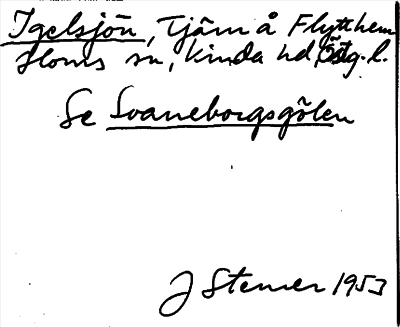 Igelsjön, Tjärn å Flytthem
Horns sn, Kinda hd, Östg. l.
Se Svaneborgsgölen
J Stener 1953